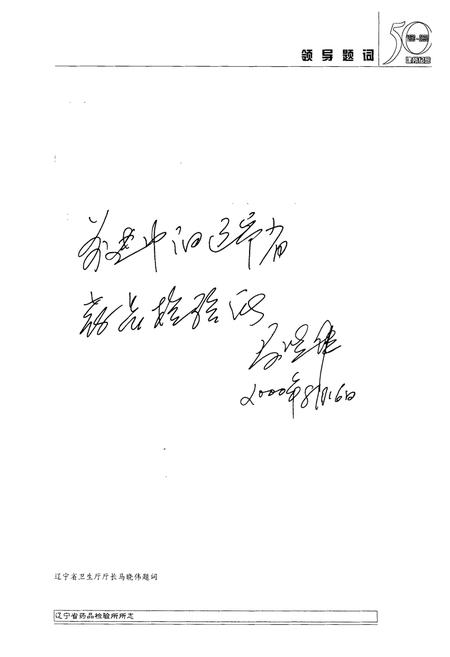 领导题词
50
前进中的辽宁省
药品检验所
马晓伟
2000年8月16日
辽宁省卫生厅厅长马晓伟题词
辽宁省药品检验所所志